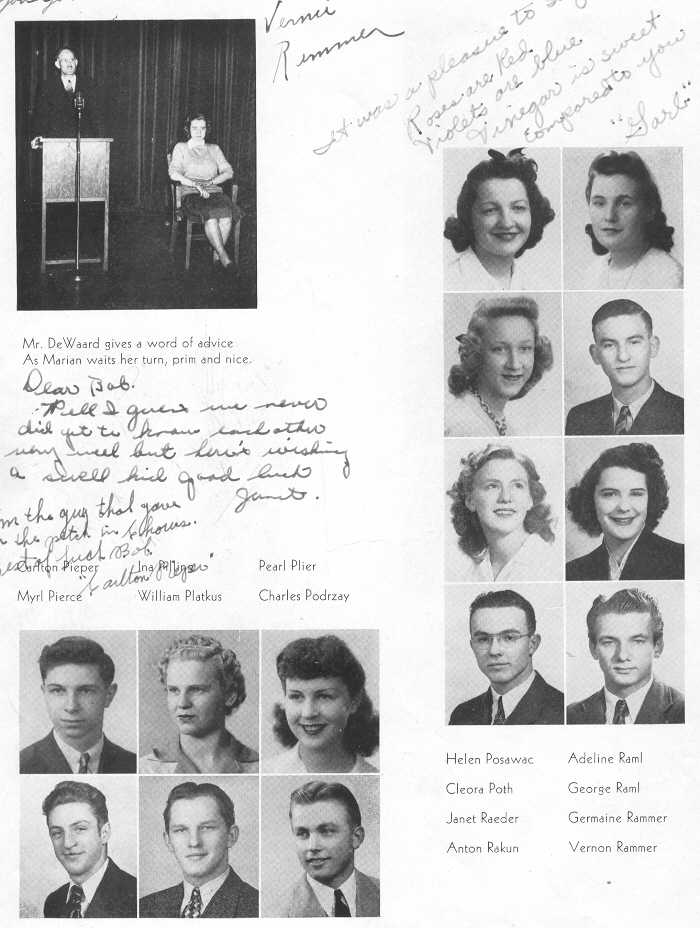 Vernie
Rammer
It was a pleasure to
Roses are Red
Violets are blue
Vinegar is sweet
compared to you
Mr. DeWaard gives a word of advice
As Marian waits her turn, prim and nice.
Dear Bob.
Well I guess we never
did get to know each other
very well but here's wishing
a swell kid good luck
Janet.
I'm the guy that gave
the pitch in Chorus.
Best of luck Bob
"Carlton Pieper"
Carlton Pieper Ina Pl Pearl Plier
Myrl Pierce William Platkus Charles Podrzay
Helen Posawac Adeline Raml
Cleora Poth George Raml
Janet Raeder Germaine Rammer
Anton Rakun Vernon Rammer